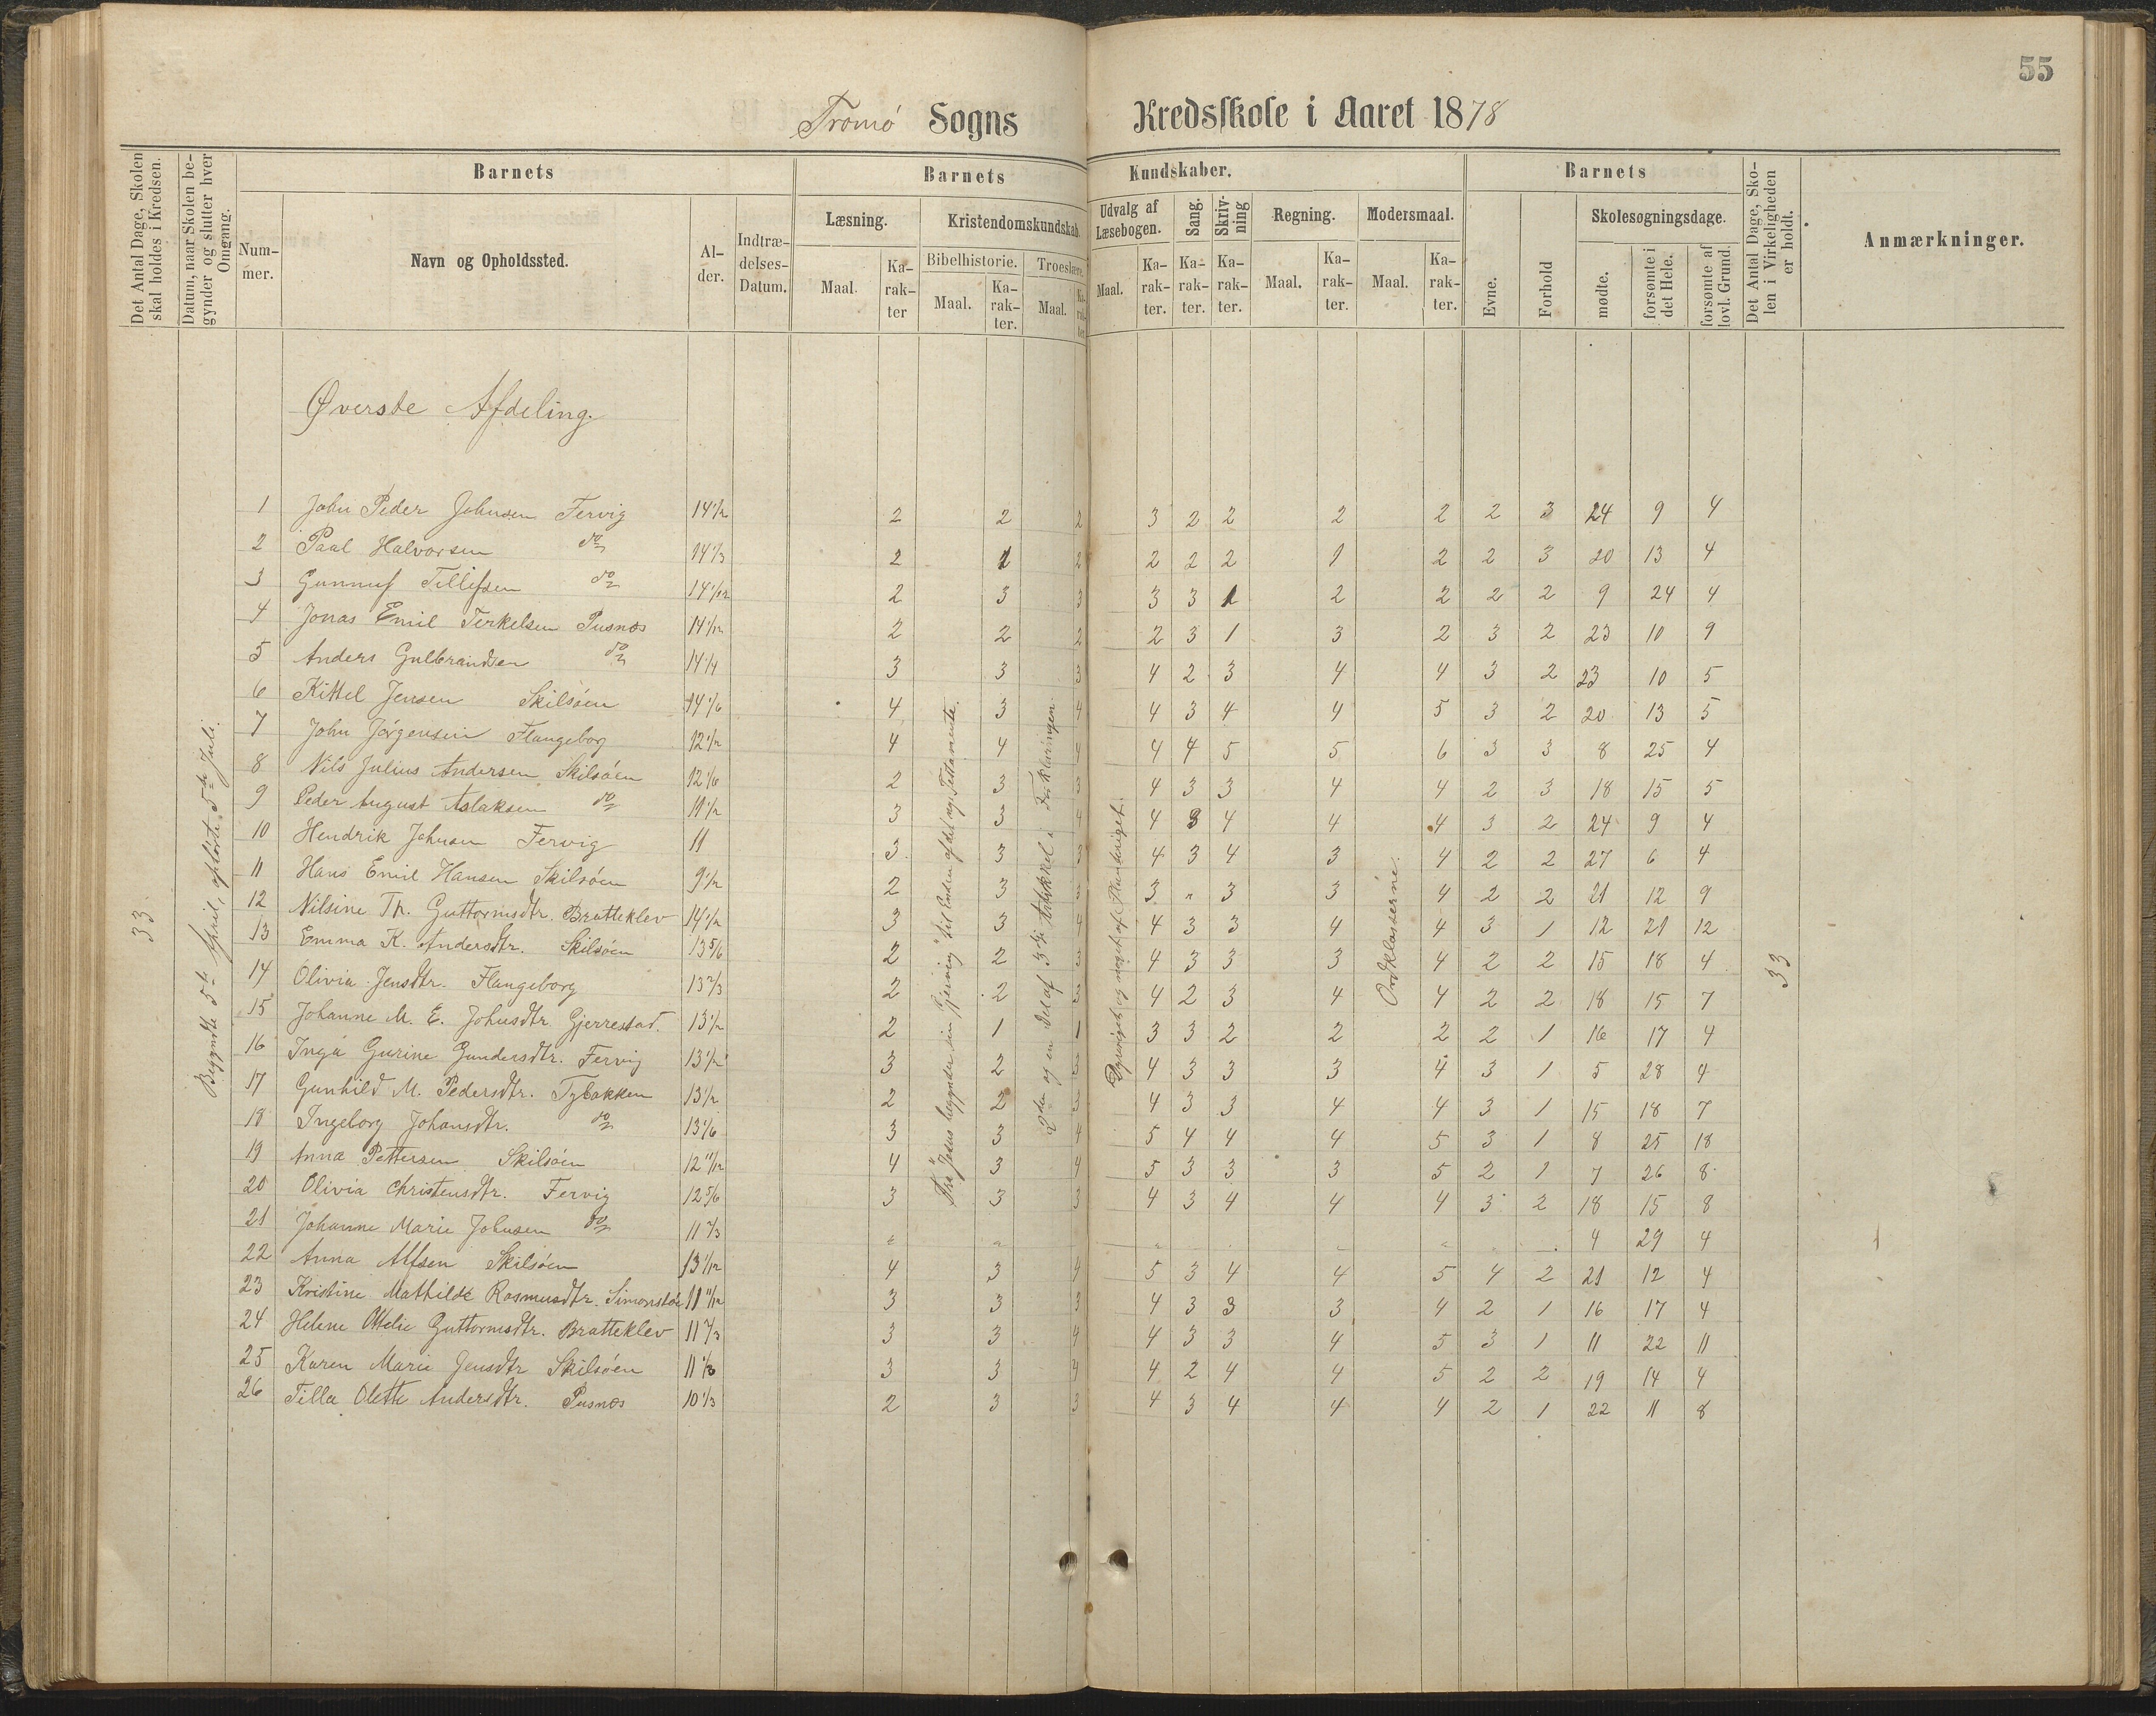 55
Tromø Sogns Kredsskole i Aaret 1878
Det Antal Dage, Skolen skal holdes i Kredsen.
Datum, naar Skolen begynder og slutter hver Omgang.
Barnets
Nummer.
Navn og Opholdssted.
Alder.
Indtrædelses-Datum.
Barnets Kundskaber.
Læsning.
Maal.
Karakter
Kristendomskundskab.
Bibelhistorie.
Maal.
Karakter.
Troeslære.
Maal.
Karakter
Udvalg af Læsebogen.
Maal.
Karakter.
Sang.
Karakter.
Skrivning
Karakter.
Regning.
Maal.
Karakter.
Modersmaal.
Maal.
Karakter.
Barnets
Evne.
Forhold
Skolesøgningsdage.
mødte.
forsømte i det Hele.
forsømte af lovl. Grund.
Det Antal Dage, Skolen i Virkeligheden er holdt.
Anmærkninger.
Øverste Afdeling.
33
Begyndte 5te April, ophørte 5te Juli.
1 John Peder Johnsen Fervig 14 1/2 2 2 2 3 2 2 2 2 2 3 24 9 4
2 Paal Halvorsen do 14 1/3 2 1 2 2 2 2 1 2 2 3 20 13 4
3 Gunnuf Tellefsen do 14 1/12 2 3 3 3 3 1 2 2 2 2 9 24 4
4 Jonas Emil Terkelsen Pusnæs 14 1/12 2 2 2 2 3 1 3 2 3 2 23 10 9
5 Anders Gulbrandsen do 14 1/4 3 3 3 4 2 3 4 4 3 2 23 10 5
6 Kittel Jensen Skilsøen 14 1/6 4 3 4 4 3 4 4 5 3 2 20 13 5
7 John Jørgensen Flangeborg 12 1/2 4 4 4 4 4 5 5 6 3 3 8 25 4
8 Nils Julius Andersen Skilsøen 12 1/6 2 3 3 4 3 3 4 4 2 3 18 15 5
9 Peder August Aslaksen do 11 1/2 3 3 4 4 3 4 4 4 3 2 24 9 4
10 Hendrik Johnsen Fervig 11 3 3 3 4 3 4 3 4 2 2 27 6 4
11 Hans Emil Hansen Skilsøen 9 1/2 2 3 3 3 " 3 3 4 2 2 21 12 9
12 Nilsine Th. Guttormsdtr. Bratteklev 14 1/2 3 3 4 4 3 3 4 4 3 1 12 21 12
13 Emma K. Andersdtr. Skilsøen 13 5/6 2 2 3 4 3 3 3 4 2 2 15 18 4
14 Olivia Jensdtr. Flangeborg 13 2/3 2 2 3 4 2 3 4 4 2 2 18 15 7
15 Johanne M. E. Johnsdtr Gjerrestad. 13 1/2 2 1 1 3 3 2 2 2 2 1 16 17 4
16 Inga Gurine Gundersdtr. Fervig 13 1/2 3 2 3 4 3 3 3 4 3 1 5 28 4
17 Gunhild M. Pedersdtr. Tybakken 13 1/2 2 2 3 4 3 3 4 4 3 1 15 18 7
18 Ingeborg Johansdtr. do 13 1/6 3 3 4 5 4 4 4 5 3 1 8 25 18
19 Anna Pettersen Skilsøen 12 11/12 4 3 4 5 3 3 3 5 2 1 7 26 8
20 Olivia Christensdtr. Fervig 12 5/6 3 3 3 4 3 4 4 4 3 2 18 15 8
21 Johanne Marie Johnsen do 11 2/3 4 29 4
22 Anna Alfsen Skilsøen 13 1/12 4 3 4 5 3 4 4 5 4 2 21 12 4
23 Kristine Mathilde Rasmusdtr. Simonstø 11 11/12 3 3 3 4 3 3 3 4 2 1 16 17 4
24 Helene Otelie Guttormsdtr. Bratteklev 11 2/3 3 3 4 4 3 3 4 5 3 1 11 22 11
25 Karen Marie Jensdtr Skilsøen 11 1/3 3 3 4 4 2 4 4 5 2 2 19 14 4
26 Tilla Olette Andersdtr. Pusnæs 10 1/3 2 3 3 4 3 4 4 4 2 1 22 11 8
Fra "Jesus begynder sin Gjerning" til Enden af det ny Testamente.
2den og en Del af 3die Artikkel i Forklaringen
Dyreriget og noget af Planteriget.
Ordklasserne.
33